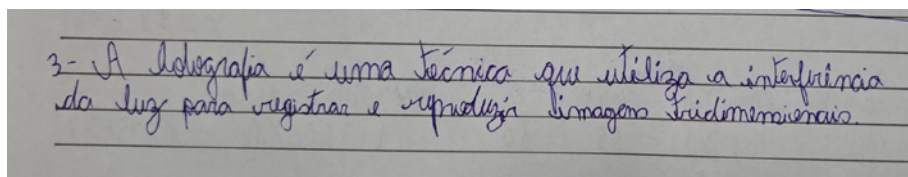 3- A holografia é uma técnica que utiliza a interferência
da luz para registrar e reproduzir imagens tridimensionais.